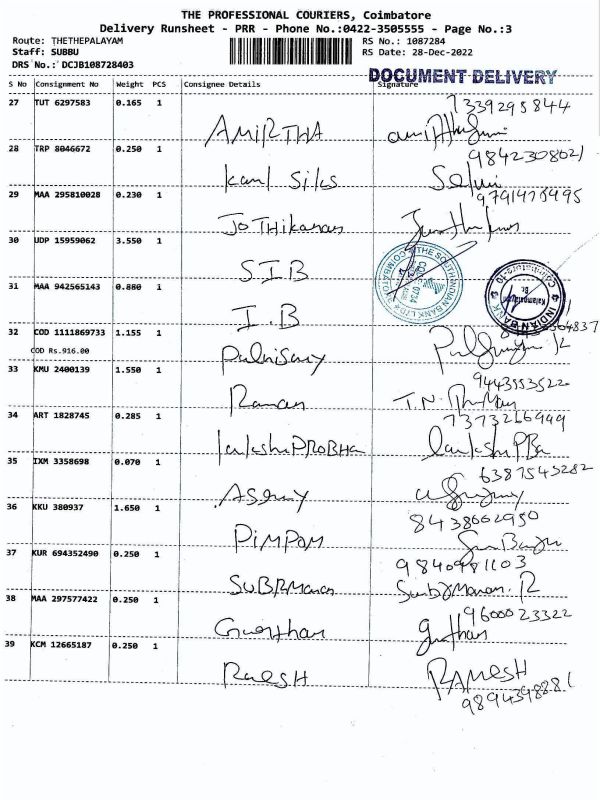 THE PROFESSIONAL COURIERS, Coimbatore
Delivery Runsheet - PRR - Phone No.:0422-3505555 - Page No.:3
Route: THETHEPALAYAM RS No.: 1087284
Staff: SUBBU RS Date: 28-Dec-2022
DRS No.: DCJB108728403
DOCUMENT DELIVERY
S No Consignment No Weight PCS Consignee Details Signature
27 TUT 6297583 0.165 1 AMIRTHA 7339295844
28 TRP 8046672 0.250 1 Selvi
29 MAA 295810028 0.230 1 JoTHikaman
30 UDP 15959062 3.550 1 S.I.B
THE SOUTH INDIAN BANK LTD
COIMBATORE
31 MAA 942565143 0.880 1 I.B
INDIAN BANK
32 COD 1111869733 1.155 1
COD Rs.916.00
33 KMU 2400139 1.550 1 Raman 9443553522
34 ART 1828745 0.285 1 7373266949
35 IXM 3358698 0.070 1 6387545282
36 KKU 380937 1.650 1 PiMPOM 8438602950
37 KUR 694352490 0.250 1 SuBRManan 9840981103
38 MAA 297577422 0.250 1 9600023322
39 KCM 12665187 0.250 1 RAMESH
9894398881